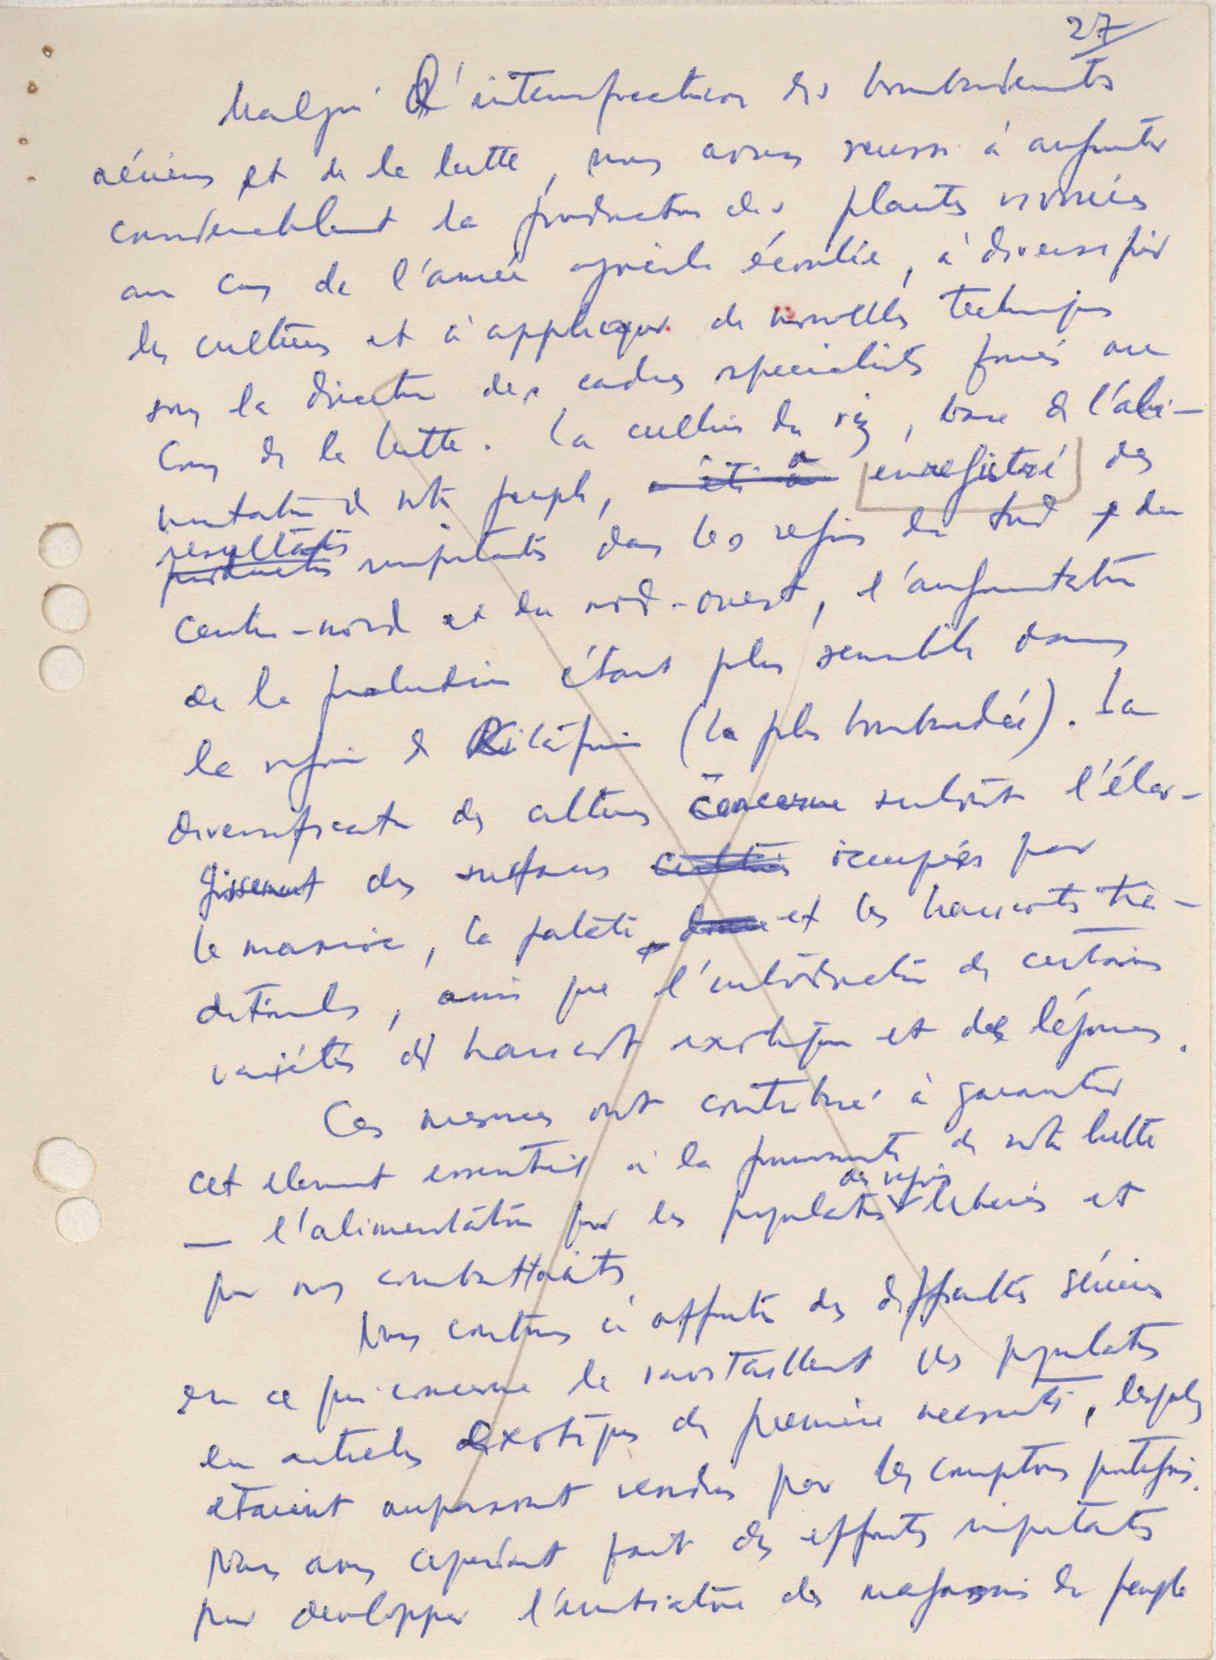 27
Malgré l'intensification des bombardements
aériens et de la lutte, nous avons réussi à augmenter
considérablement la production des plantes vivrières
au cours de l'année agricole écoulée, à diversifier
les cultures et à appliquer de nouvelles techniques
sous la direction des cadres spécialisés formés au
cours de la lutte. La culture du riz, base de l'ali-
mentation de notre peuple, a enregistré des
résultats importants dans les régions du Sud, du
centre-nord et du nord-ouest, l'augmentation
de la production étant plus sensible dans
la région de Kitáfine (la plus bombardée). La
diversification des cultures concerne surtout l'élar-
gissement des surfaces occupées par
le manioc, la patate et les haricots tra-
ditionnels, ainsi que l'introduction de certaines
variétés de haricot exotique et des légumes.
Ces mesures ont contribué à garantir
cet element essentiel à la poursuite de notre lutte
— l'alimentation pour les populations des régions libérées et
pour nos combattants
Nous continuons à affronter des difficultés sérieuses
en ce qui concerne le ravitaillement des populations
en articles exotiques de première necessité, lesquels
étaient auparavant vendus par les comptoirs portugais.
Nous avons cependant fait des efforts importants
pour developper l'initiative des magasins du peuple